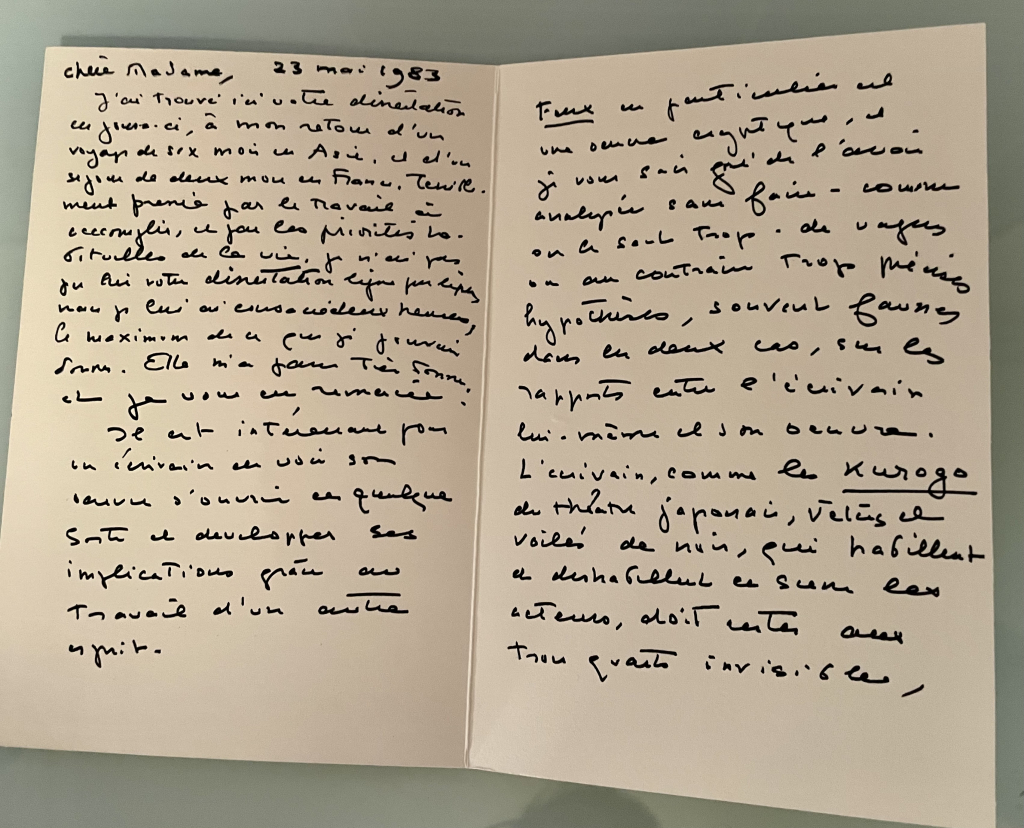 chère Madame, 23 mai 1983
J'ai trouvé ici votre dissertation
ces jours-ci, à mon retour d'un
voyage de six mois en Asie, et d'un
séjour de deux mois en France. Terrible-
ment pressée par le travail à
accomplir, et par les priorités ha-
bituelles de la vie, je n'ai pas
pu lire votre dissertation ligne par ligne,
mais je lui ai consacré deux heures,
le maximum de ce que je pouvais
donner. Elle m'a paru très bonne,
et je vous en remercie.
Il est intéressant pour
un écrivain de voir son
œuvre s'ouvrir en quelque
sorte et développer ses
implications grâce au
travail d'un autre
esprit.
Feux en particulier est
une œuvre cryptique, et
je vous sais gré de l'avoir
analysée sans faire - comme
on le fait trop - de vagues
ou au contraire trop précises
hypothèses, souvent fausses
dans les deux cas, sur les
rapports entre l'écrivain
lui-même et son œuvre.
L'écrivain, comme les Kurogo
du théâtre japonais, vêtus et
voilés de noir, qui habillent
et déshabillent en scène les
acteurs, doit rester aux
trois quarts invisible,